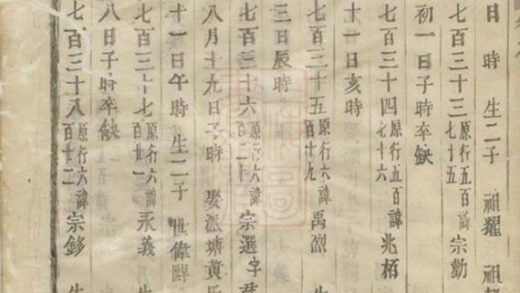 日 時 生二子 祖耀 祖
七百三十三原行五百七十五諱宗勳
初一日子時卒缺
七百三十四原行五百七十六諱兆栢
十一日亥時
七百三十五原行六百十九諱禹 生
三日辰時
七百三十六原行六百二十諱宗選字君
八月十九日子時 娶派塘黄氏
十一日午時 生二子 世偉
七百三十七原行六百廿一諱永義 生
八日子時卒缺
七百三十八原行六百廿二諱宗 生